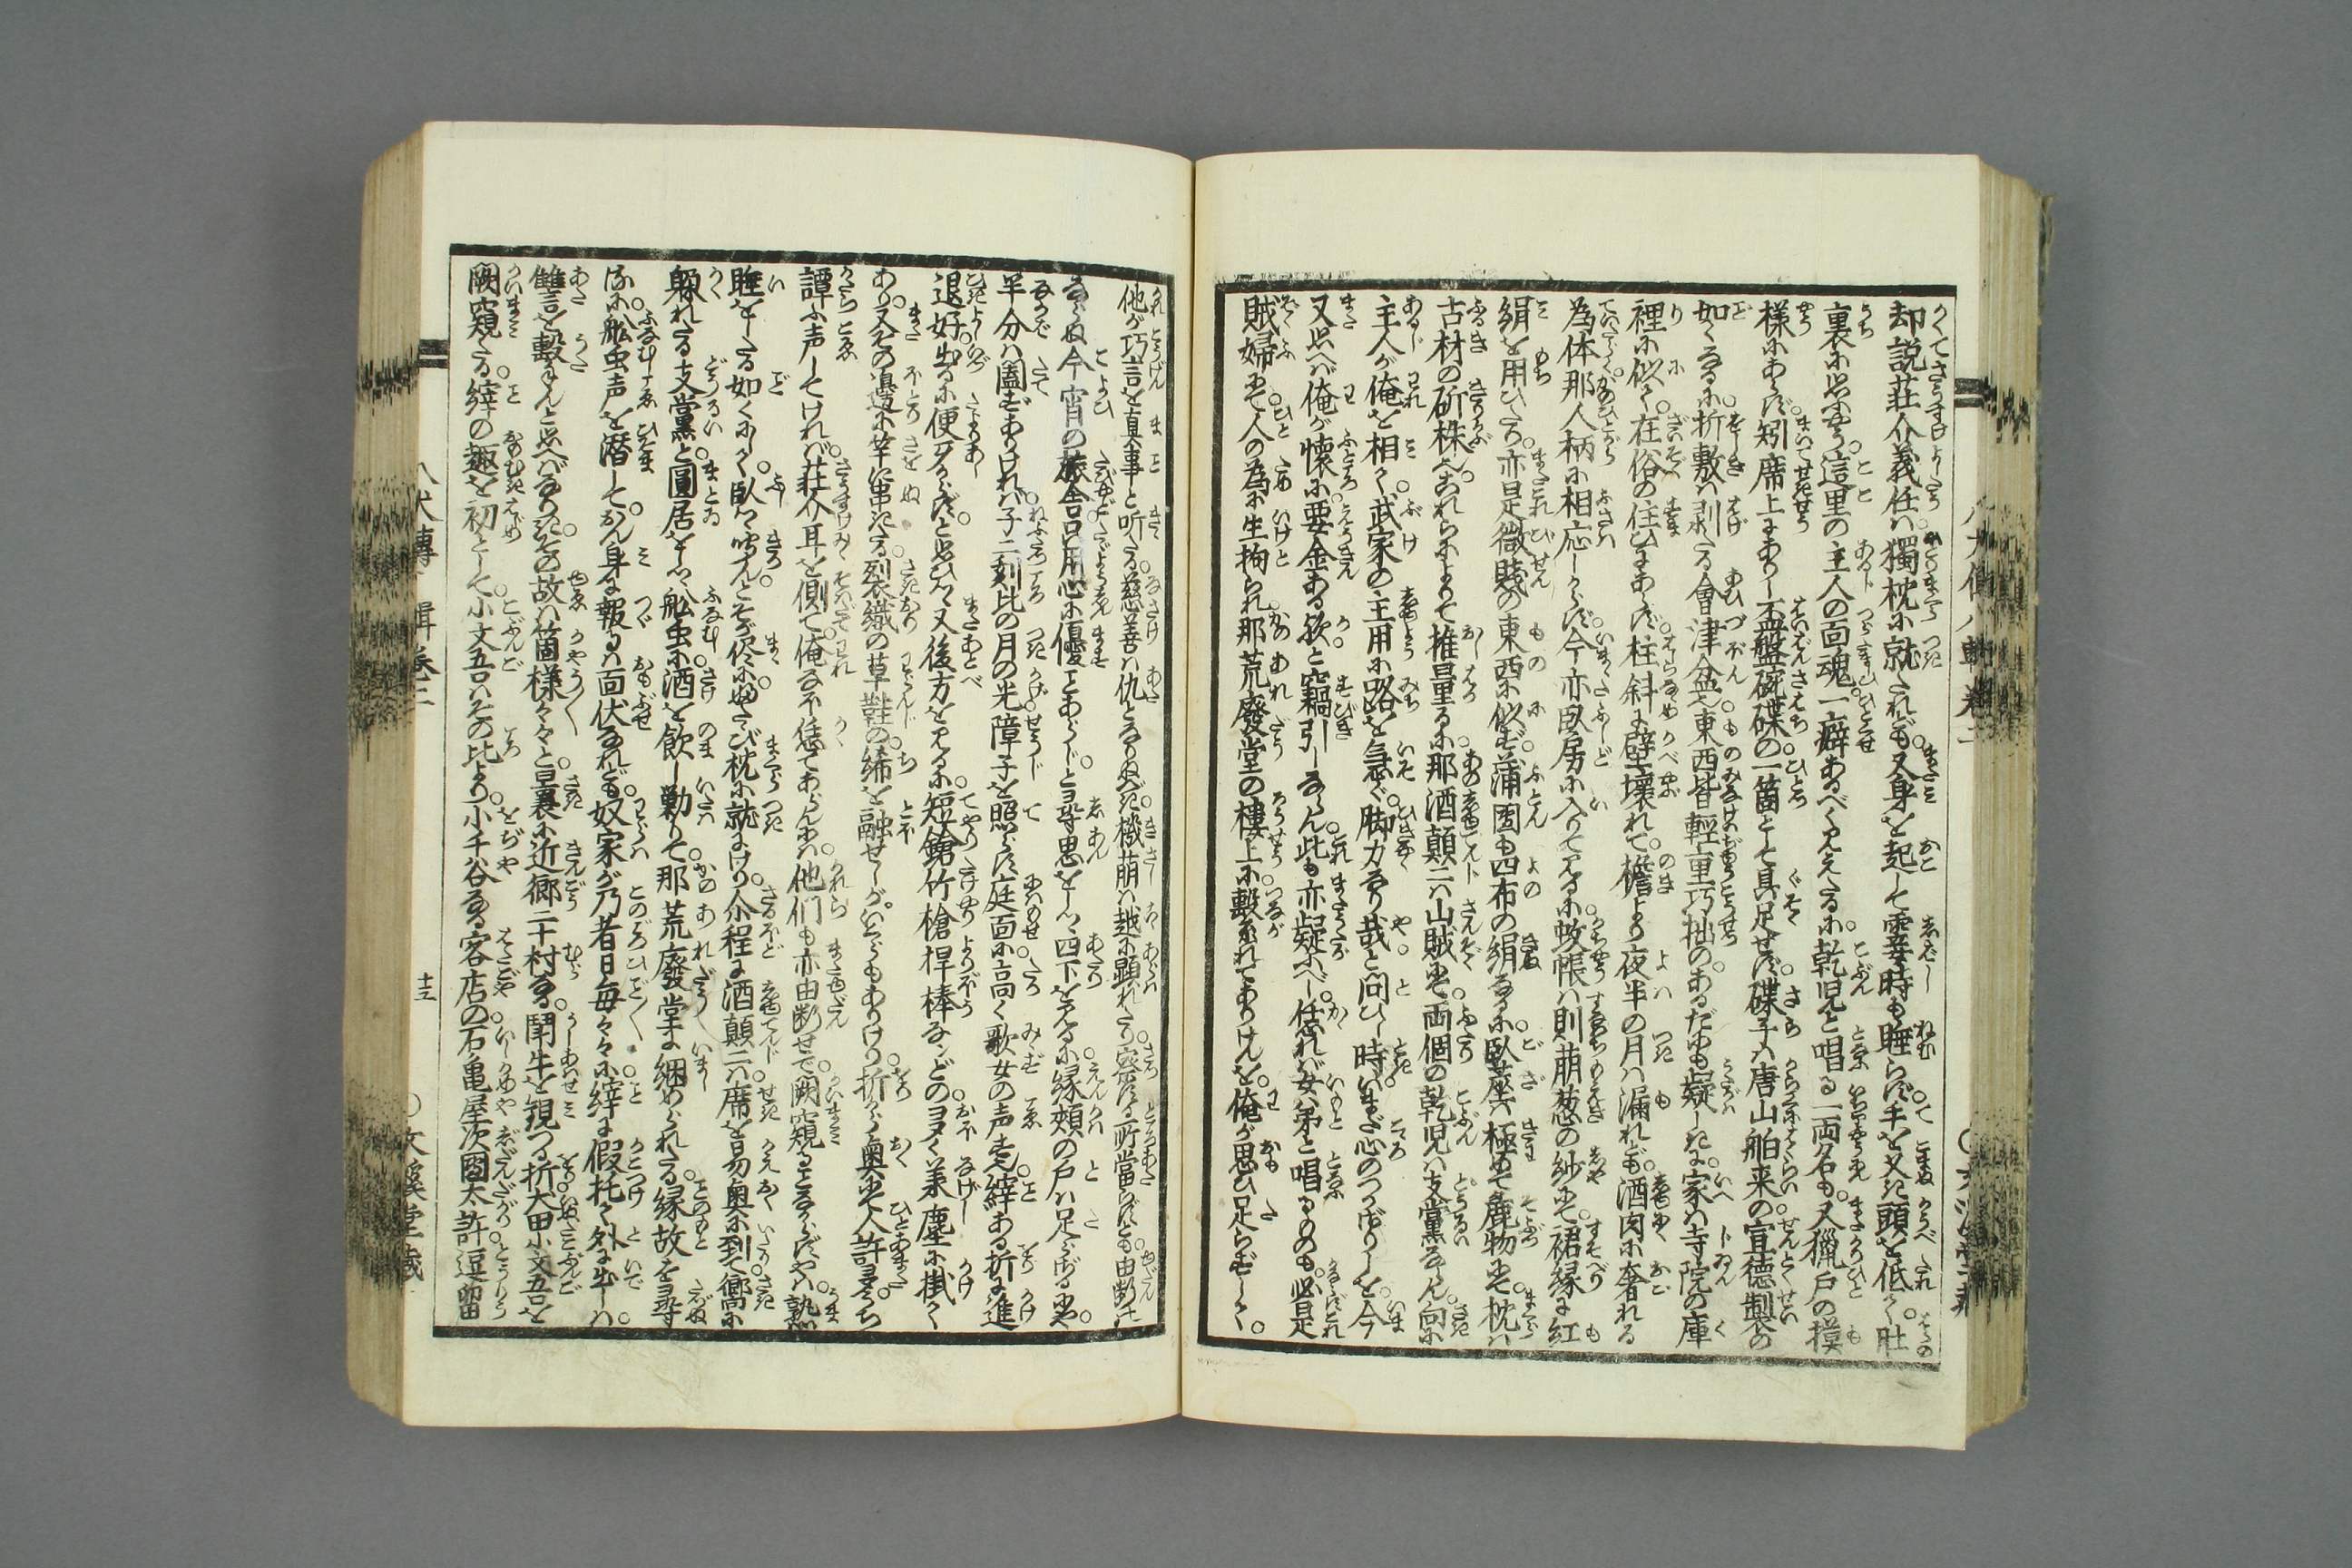 却説莊介義任は。獨枕に就たれども。又身を起して霎時も睡らず。手を叉き頭を低て。肚
裏に思ふやう。這里の主人の面魂。一癖あるべく見えたるに。乾児と唱る一両名も。又獵戸の摸
様にあらず。矧席上にありし盃盤碗碟の。一箇とて具足せず。碟子は唐山舶来の。宣徳製の
如くなるに。折敷は剥たる會津盆也。東西皆軽重巧拙のある。だも疑しきに。家は寺院の庫
裡に似て。在俗の住ひにあらず。柱斜に壁壊れて。檐より夜半の月は漏れども。酒肉に奢れる
為体。那人柄に相応しからず。今亦臥房に入りて見るに。蚊帳は則萌葱の紗にて。裙縁に紅
絹を用ひたり。亦是微賤の東西に似ず。蒲團も四布の絹なるに。臥草は極めて麁物にて。枕は
古材の斫株也。これらによりて推量るに。那酒顛二は山賊にて。両個の乾児は支黨ならん。向に
主人が俺を相て。武家の主用に路を急ぐ。脚力なり哉と問ひし時。いまだ心のつかざりしを。今
又思へば俺が懐に。要金ある歟と竊引しならん。此も亦疑ふべし。恁れば女弟と唱るものも。必是
賊婦にて。人の為に生拘られ。那荒廢堂の樓上に。繋れてありけんを。俺が思ひ足らずして。
他が巧言を真事と听たる。慈善は仇となりぬべき。機萌は越に顕れたり。窓ず所當らずとも。由断は
ならぬ今宵の旅舎。只用心に優ことあらじ。と尋思をしつゝ四下を見るに。縁頬の戸は足らざるにや。
半分は闔ずありければ。子二刻比の月の光。障子を照らす庭面に。高く歌女の声す也。縡ある折に進
退好。出るに便りわろからず。と思ひつゝ又後方を見るに。短鎗竹槍桿棒なンどの。夛く長押に掛て
あり。又その邉に竿に串きたる。裂衣織の草鞋の。緒を融せしが。いくらもありけり。折から奥に人許夛。うち
譚ふ声してければ。莊介耳を側て。俺なほ恁てあらんには。他們も亦由断せで。闕窺ることなからずやは。熟
睡をしたる如くにして。臥て听んとそが侭に。ふたゝび枕に就にけり。尒程に酒顛二は。席を易奥に到て。嚮に
躱れたる支黨と。圓居をしつゝ舩虫に。酒を飲し勦りて。那荒廢堂に綑められたる。縁故を尋
ぬるに。舩虫声を潜して。さん身に報るは面伏なれども。奴家が乃者日毎々々に。縡に假托て外に出しは。
讐言を撃んと思へばなりき。その故は箇様々々と。曩に近郷二十村なる。鬪牛を観つる折。犬田小文吾を
闕窺たる。縡の趣を初として。小文吾はその比より。小千谷なる客店の。石亀屋次團太許逗留
十三